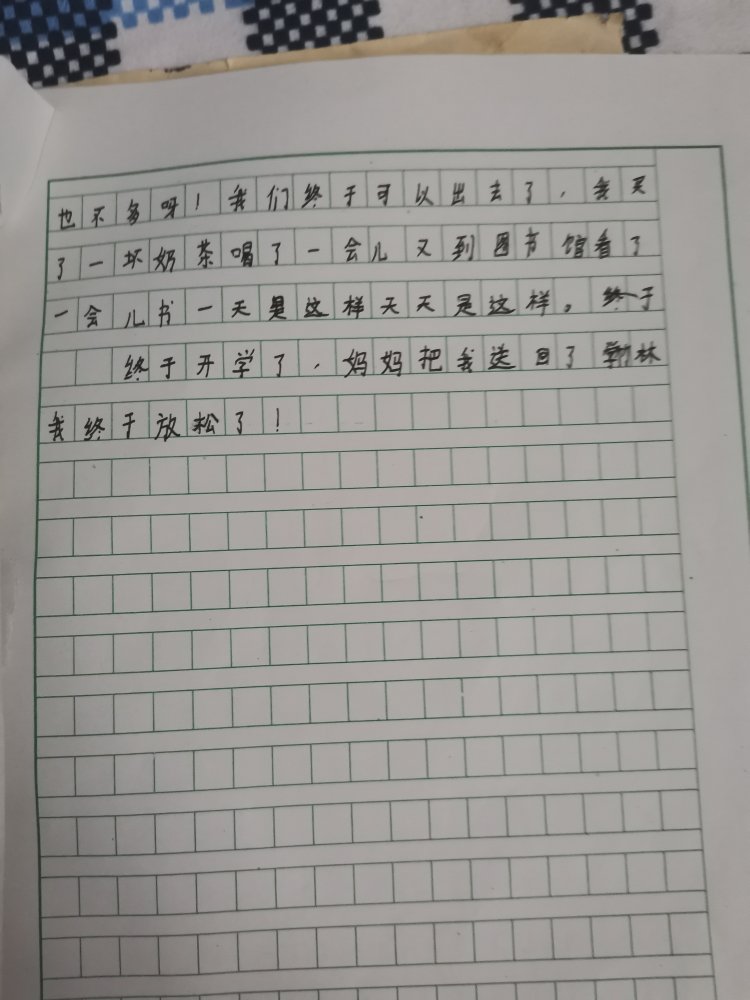 也不多呀！我们终于可以出去了，我买
了一坏奶茶喝了一会儿又到图书馆看了
一会儿书一天是这样天天是这样。终于
终于开学了，妈妈把我送回了翰林
我终于放松了！